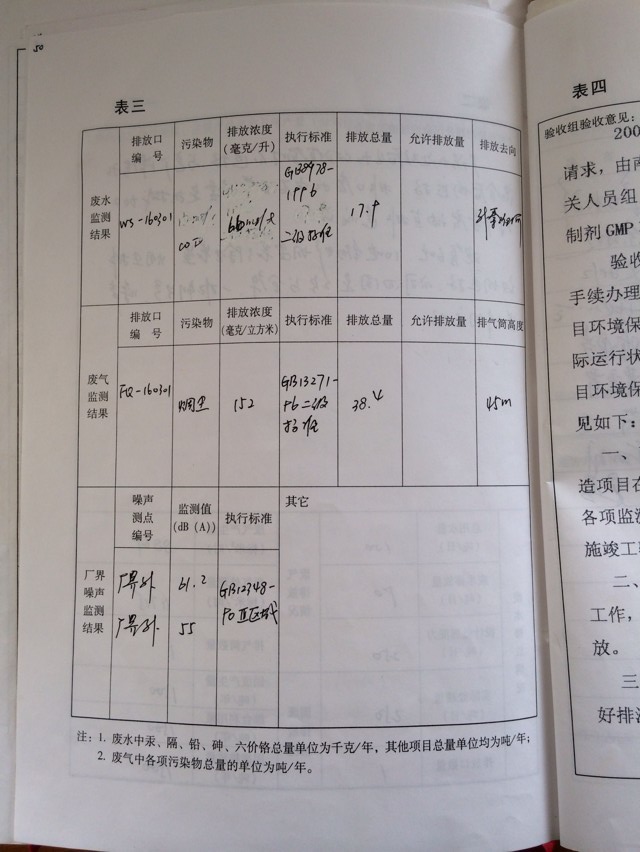 50
表三
排放口编号 污染物 排放浓度(毫克/升) 执行标准 排放总量 允许排放量 排放去向
废水监测结果 WS-160301 COD GB8978-1996 二级标准 17.9
排放口编号 污染物 排放浓度(毫克/立方米) 执行标准 排放总量 允许排放量 排气筒高度
废气监测结果 FQ-160301 烟尘 152 GB13271-96二级标准 38.4 45m
噪声测点编号 监测值(dB(A)) 执行标准 其它
厂界噪声监测结果 厂界外 61.2 GB12348-90 Ⅱ区域
厂界外 55
注：1. 废水中汞、隔、铅、砷、六价铬总量单位为千克/年，其他项目总量单位均为吨/年；
2. 废气中各项污染物总量的单位为吨/年。
表四
验收组验收意见：
200
请求，由
关人员组
制剂GMP
验收
手续办理
目环境保
际运行状
目环境保
见如下：
一、
造项目在
各项监测
施竣工
二、
工作，
放。
三
好排污